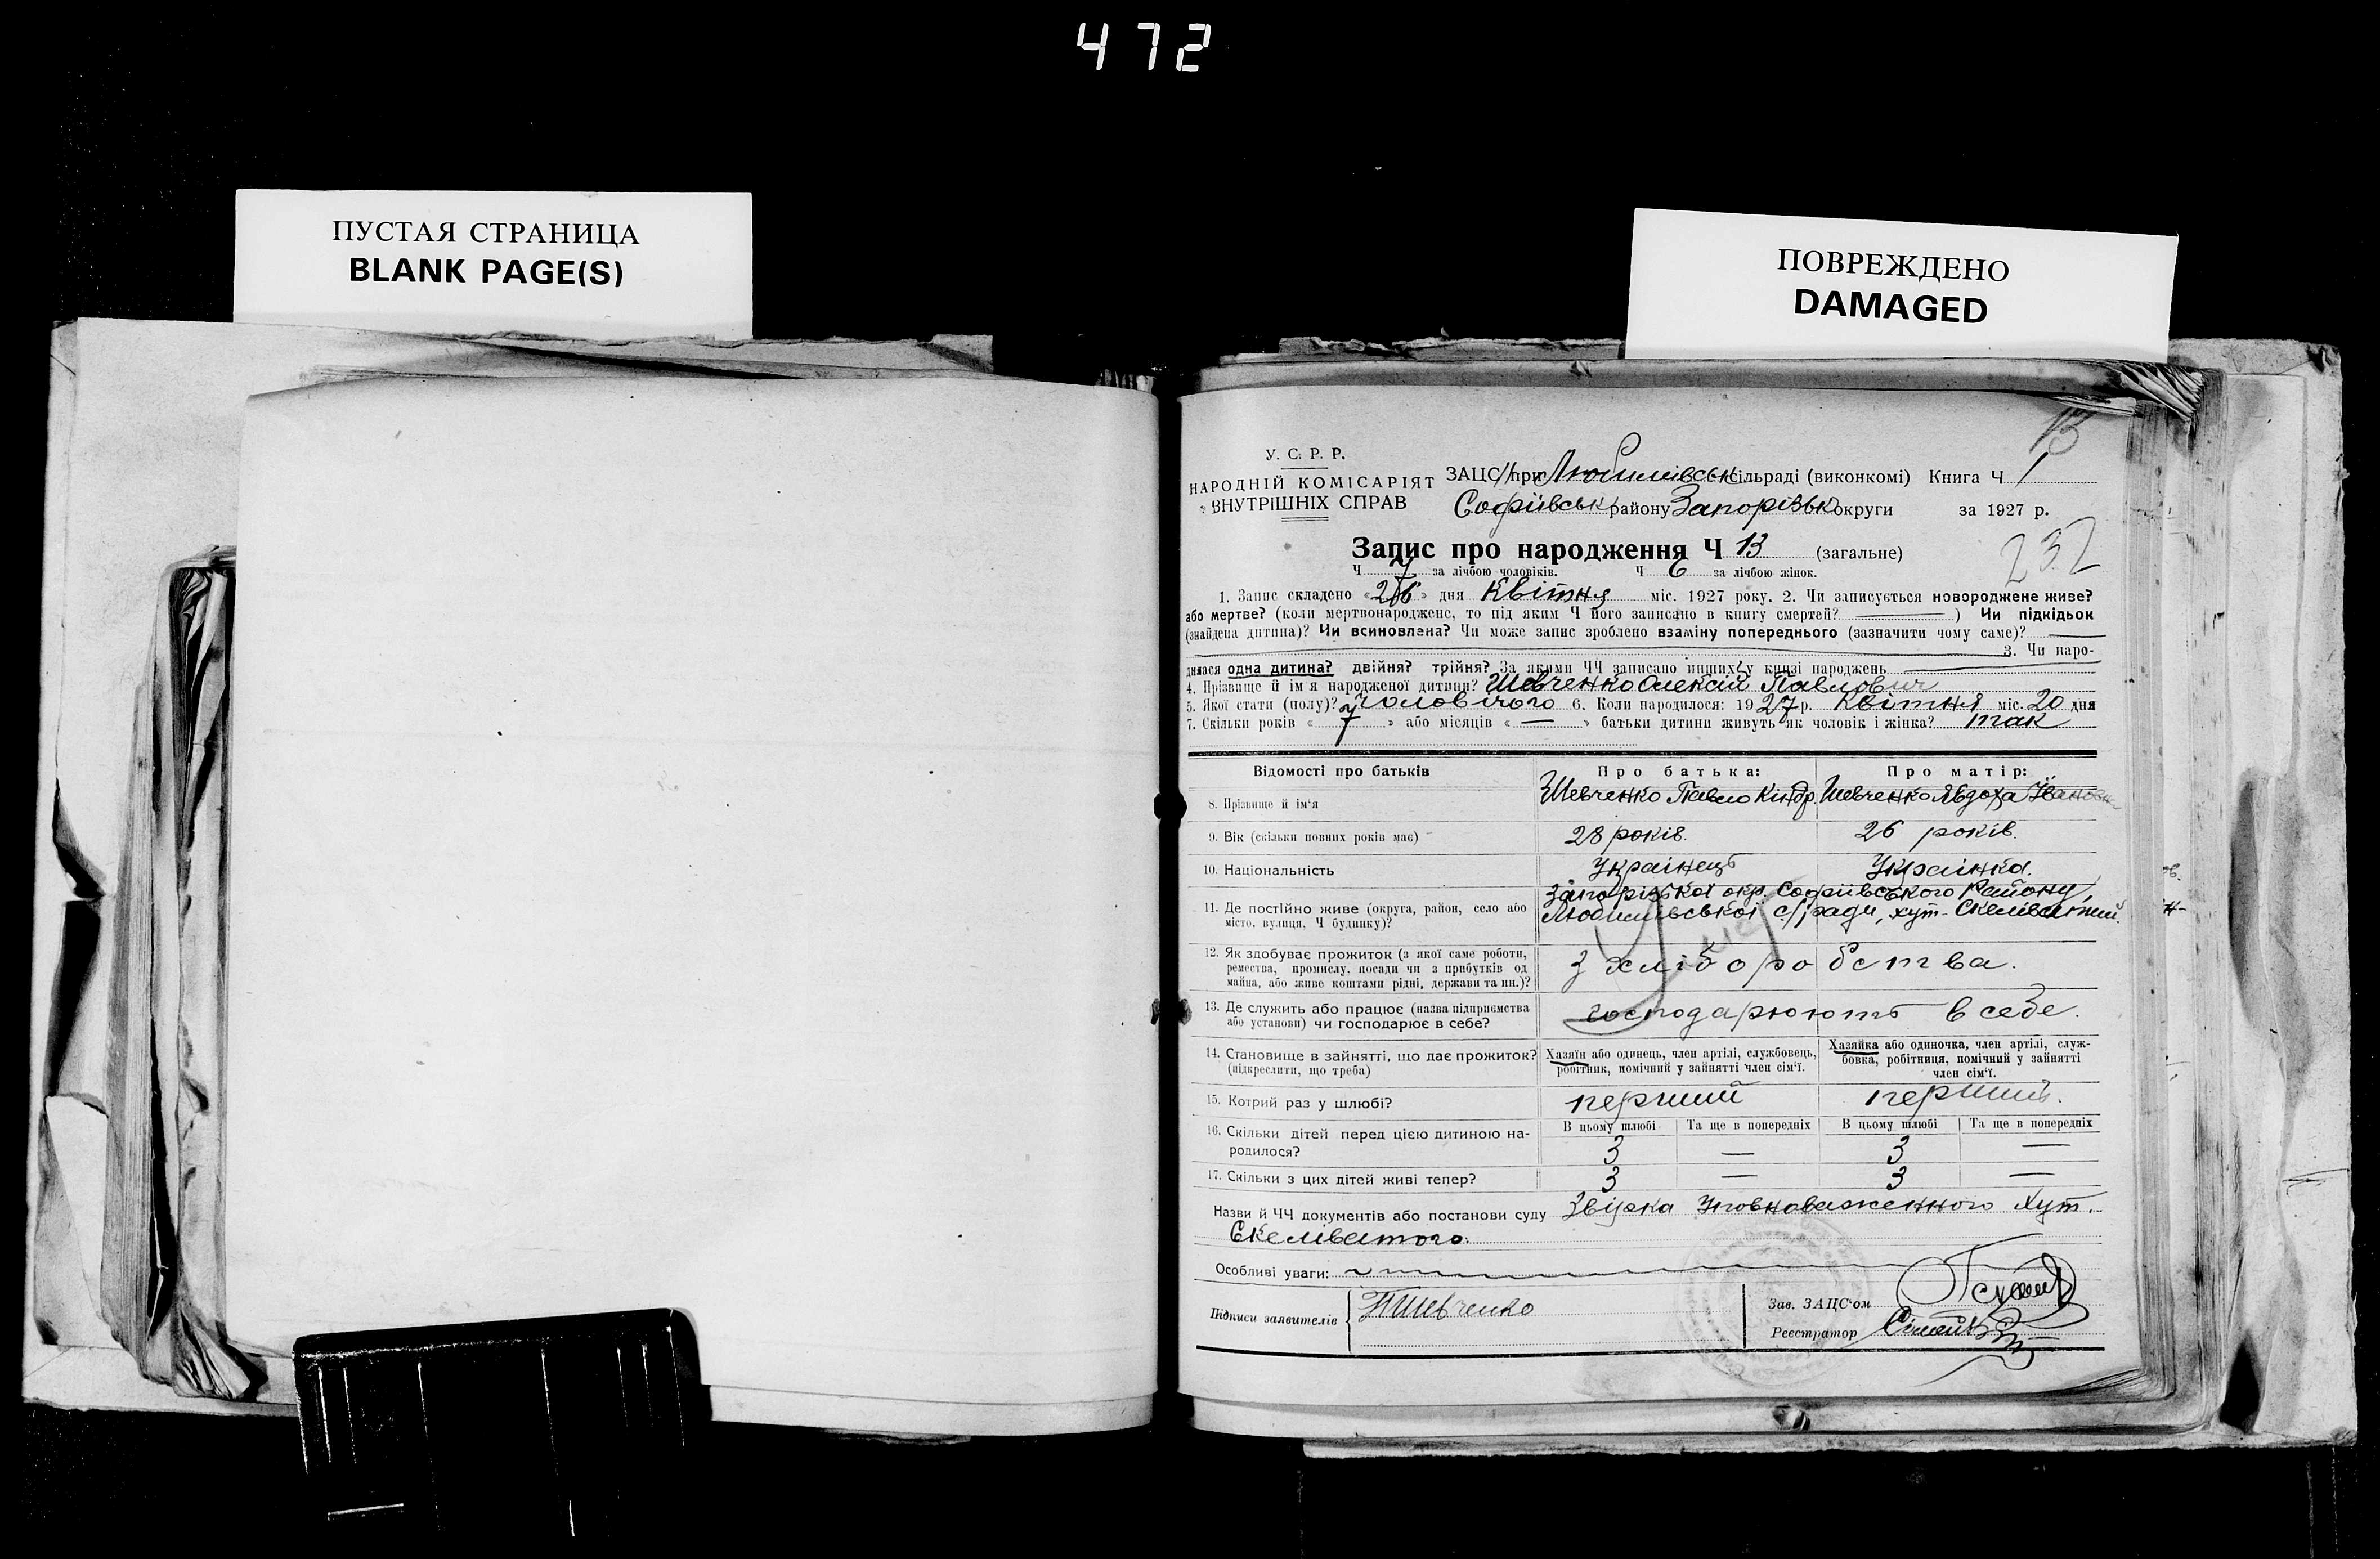 472
ПУСТАЯ СТРАНИЦА
BLANK PAGE(S)
ПОВРЕЖДЕНО
DAMAGED
13
У. С. Р. Р.
НАРОДНІЙ КОМІСАРІЯТ
ВНУТРІШНІХ СПРАВ
ЗАЦС при Любимівськ сільраді (виконкомі) Книга Ч 1
Софіївськ району Запорізьк округи за 1927 р.
232
Запис про народження Ч 13 (загальне)
Ч 7 за лічбою чоловіків. Ч 6 за лічбою жінок.
1. Запис складено «26» дня Квітня міс. 1927 року. 2. Чи записується новороджене живе?
або мертве? (коли мертвонароджене, то під яким Ч його записано в книгу смертей? —) Чи підкідьок
(знайдена дитина)? Чи всиновлена? Чи може запис зроблено взаміну попереднього (зазначити чому саме)? —
3. Чи наро-
дилася одна дитина? двійня? трійня? За якими ЧЧ записано инших у книзі народжень —
4. Прізвище й ім'я народженої дитини? Шевченко Олексій Павлович
5. Якої стати (полу)? Чоловічого 6. Коли народилося: 1927 р. Квітня міс. 20 дня
7. Скільки років « 7 » або місяців « — » батьки дитини живуть як чоловік і жінка? так
Відомості про батьків
Про батька:
Про матір:
8. Прізвище й ім'я
Шевченко Павло Киндр.
Шевченко Явдоха Іванівн
9. Вік (скільки повних років має)
28 років.
26 років.
10. Національність
Українець
Українка.
11. Де постійно живе (округа, район, село або
місто, вулиця, Ч будинку)?
Запорізької окр. Софіївського Району,
Любимівської с/ради, хут. Скелюватий.
12. Як здобуває прожиток (з якої саме роботи,
ремества, промислу, посади чи з прибутків од
майна, або живе коштами рідні, держави та ин.)?
з хліборобства.
13. Де служить або працює (назва підприємства
або установи) чи господарює в себе?
господарюють в себе.
14. Становище в зайнятті, що дає прожиток?
(підкреслити, що треба)
Хазяїн або одинець, член артілі, службовець,
робітник, помічний у зайнятті член сім'ї.
Хазяйка або одиночка, член артілі, служ-
бовка, робітниця, помічний у зайнятті
член сім'ї.
15. Котрий раз у шлюбі?
перший
перший.
16. Скільки дітей перед цією дитиною на-
родилося?
В цьому шлюбі
Та ще в попередніх
В цьому шлюбі
Та ще в попередніх
3 — 3 —
17. Скільки з цих дітей живі тепер?
3 — 3 —
Назви й ЧЧ документів або постанови суду Звірка Уповноваженного Хут.
Скеліватого.
Особливі уваги:
Підписи заявителів
ПШевченко
Зав. ЗАЦС'ом
Реєстратор